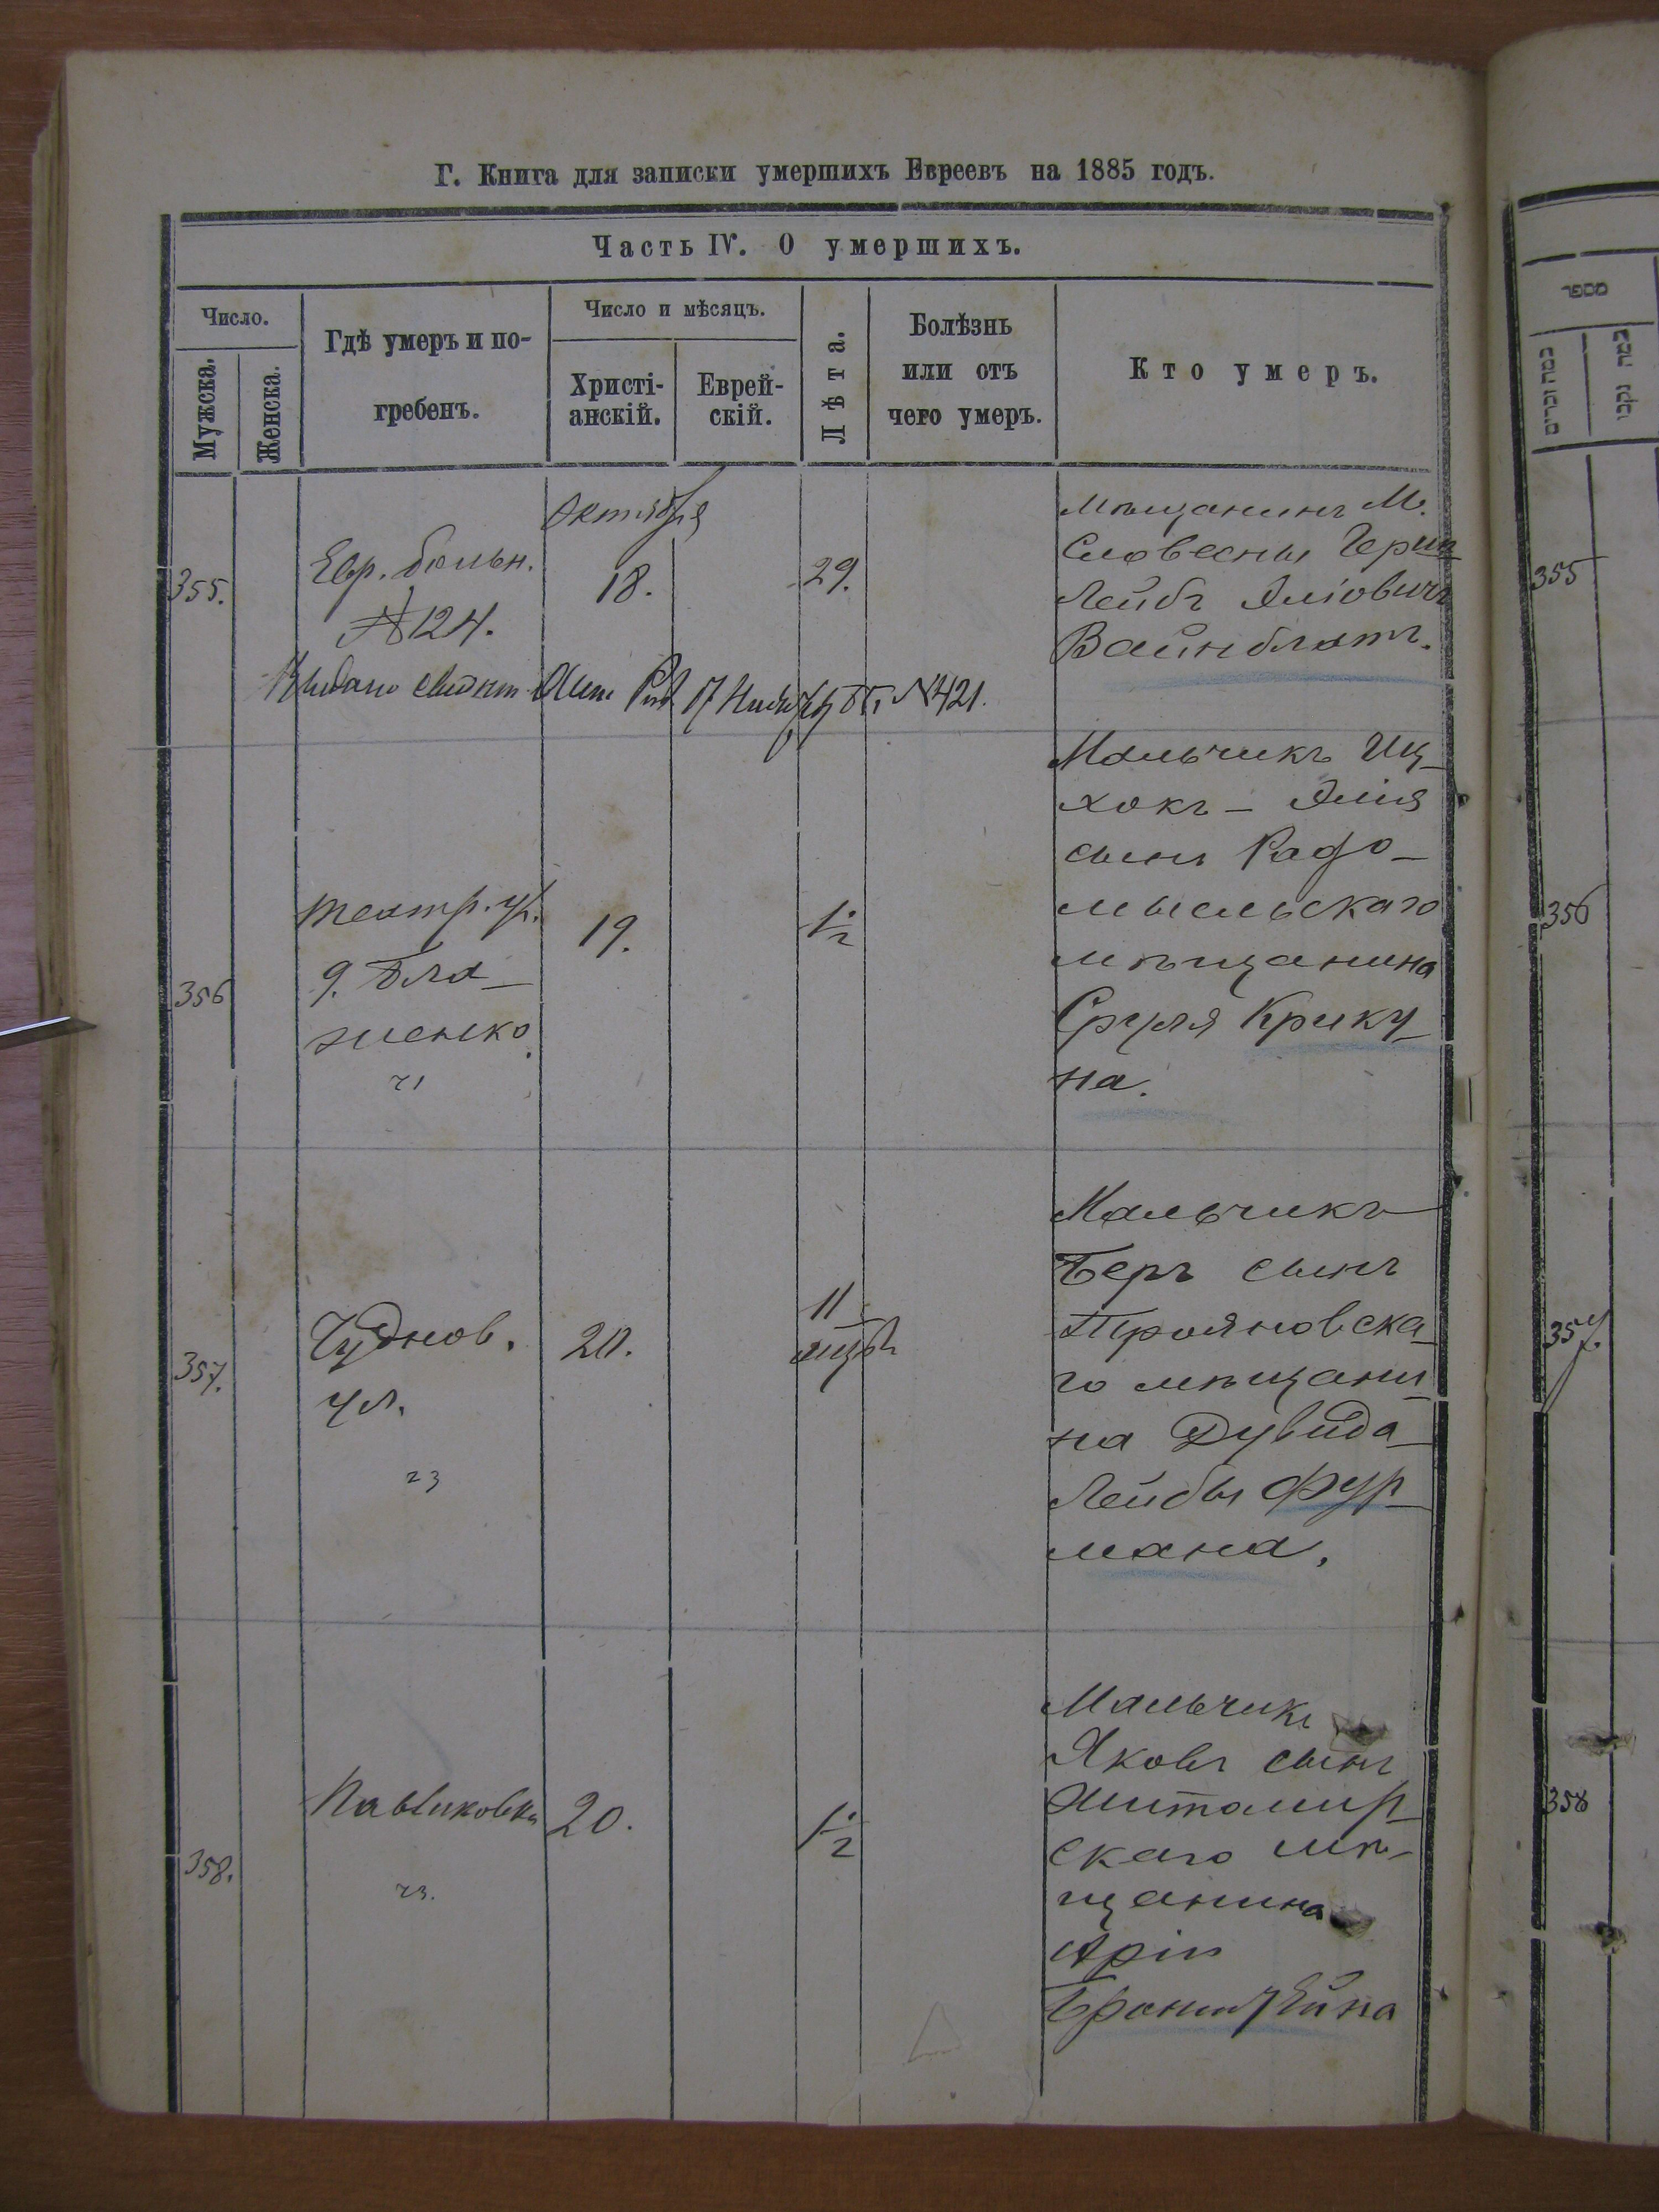 Г. Книга для записки умершихъ Евреевъ на 1885 годъ.
Часть IV. О умершихъ.
Число.
Мужска.
Женска.
Гдѣ умеръ и по-
гребенъ.
Число и мѣсяцъ.
Христі-
анскій.
Еврей-
скій.
Лѣта.
Болѣзнь
или отъ
чего умеръ.
Кто умеръ.
355.
Евр. больн.
№ 124.
Октября
18.
29.
Мѣщанинъ М.
Словесны Герш
Лейбъ Эліовичъ
Вайнблатъ.
Выдано свидѣт. №421.
356
Театр. ул.
д. Бла-
женко.
21
19.
1½
Мальчикъ Иц-
хокъ - Элія
сынъ Радо-
мысльскаго
мѣщанина
Сруля Крику-
на.
357.
Чуднов.
ул.
23
20.
11
мѣс.
Мальчикъ
Беръ сынъ
Трояновска-
го мѣщани-
на Дувида-
Лейбы Фур-
мана.
358.
Павликовка
23.
20.
1½
Мальчикъ
Яковъ сынъ
Житомир-
скаго мѣ-
щанина
Арія
355
356
357.
358